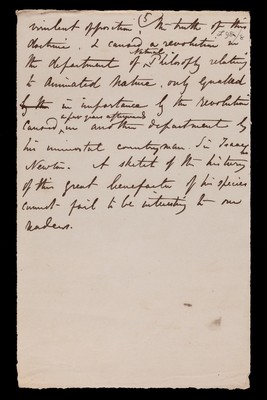 (5
virulent opposition, the truth of this
doctrine, & caused a revolution in
the department of Natural Philosophy relating
to Animated Nature, only equalled
by the in importance by the revolution
caused a few years afterwards in another department by
his immortal countryman Sir Isaac
Newton. A sketch of the history
of this great benefactor of his species
cannot fail to be interesting to our
readers.